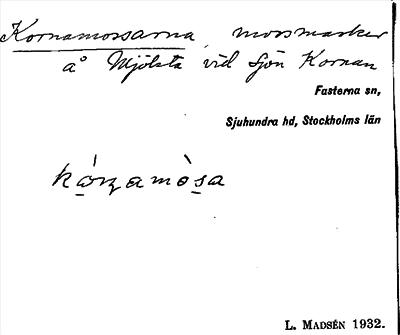 Kornamossarna, mossmarker
å Mjölsta vid sjön Kornan
Fasterna sn,
Sjuhundra hd, Stockholms län
L. MADSÉN 1932.